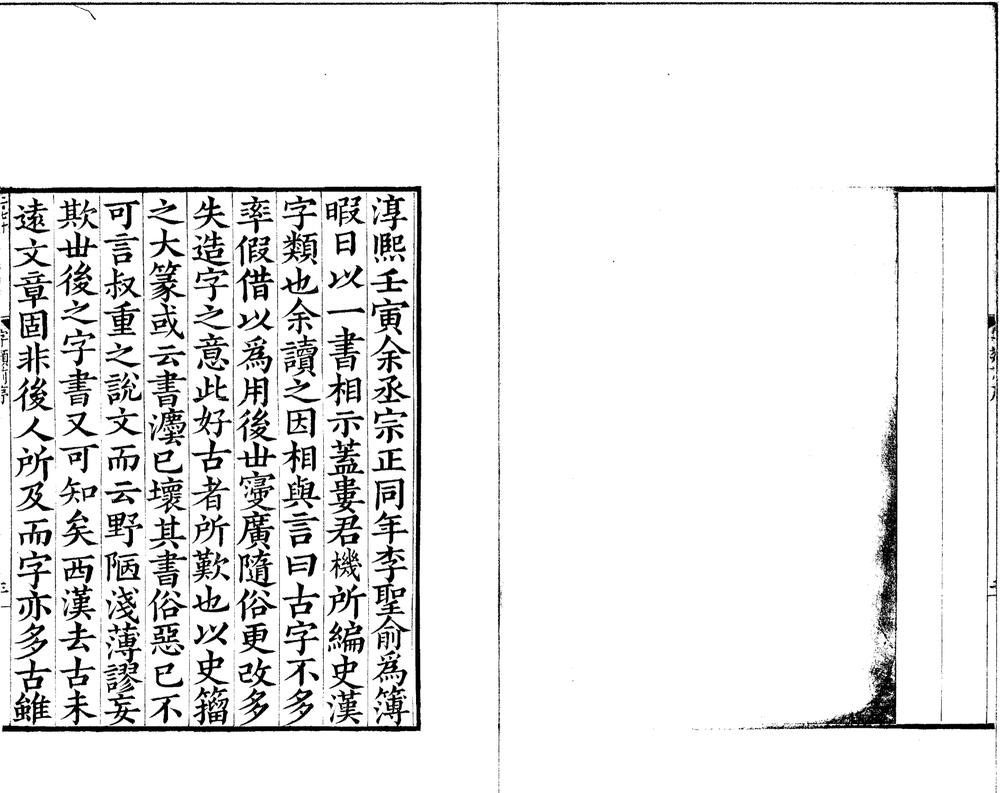 淳熙壬寅余丞宗正同年李聖俞爲簿
暇日以一書相示蓋婁君機所編史漢
字類也余讀之因相與言曰古字不多
率假借以爲用後世寖廣隨俗更改多
失造字之意此好古者所歎也以史籀
之大篆或云書灋已壞其書俗惡已不
可言叔重之說文而云野陋淺薄謬妄
欺世後之字書又可知矣西漢去古未
遠文章固非後人所及而字亦多古雖
三